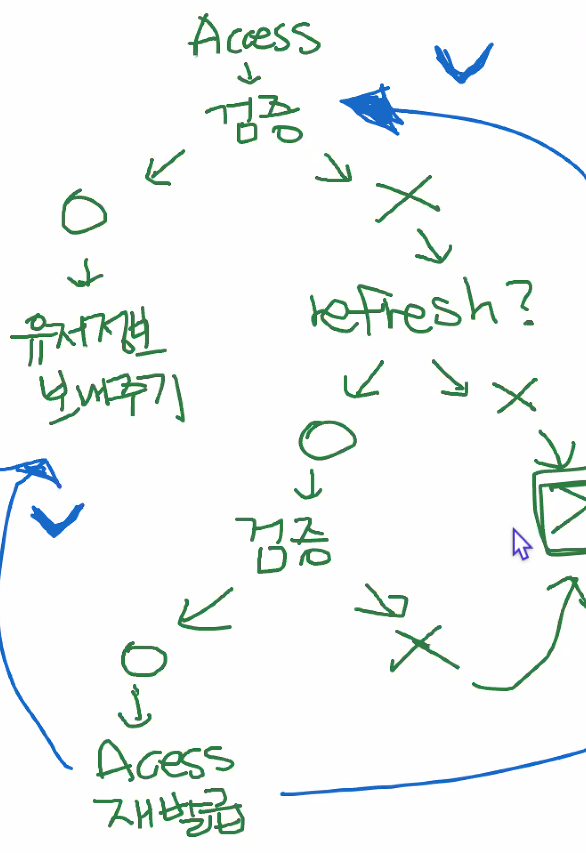 Access
검증
유저정보
보내주기
refresh?
검증
Acess
재발급